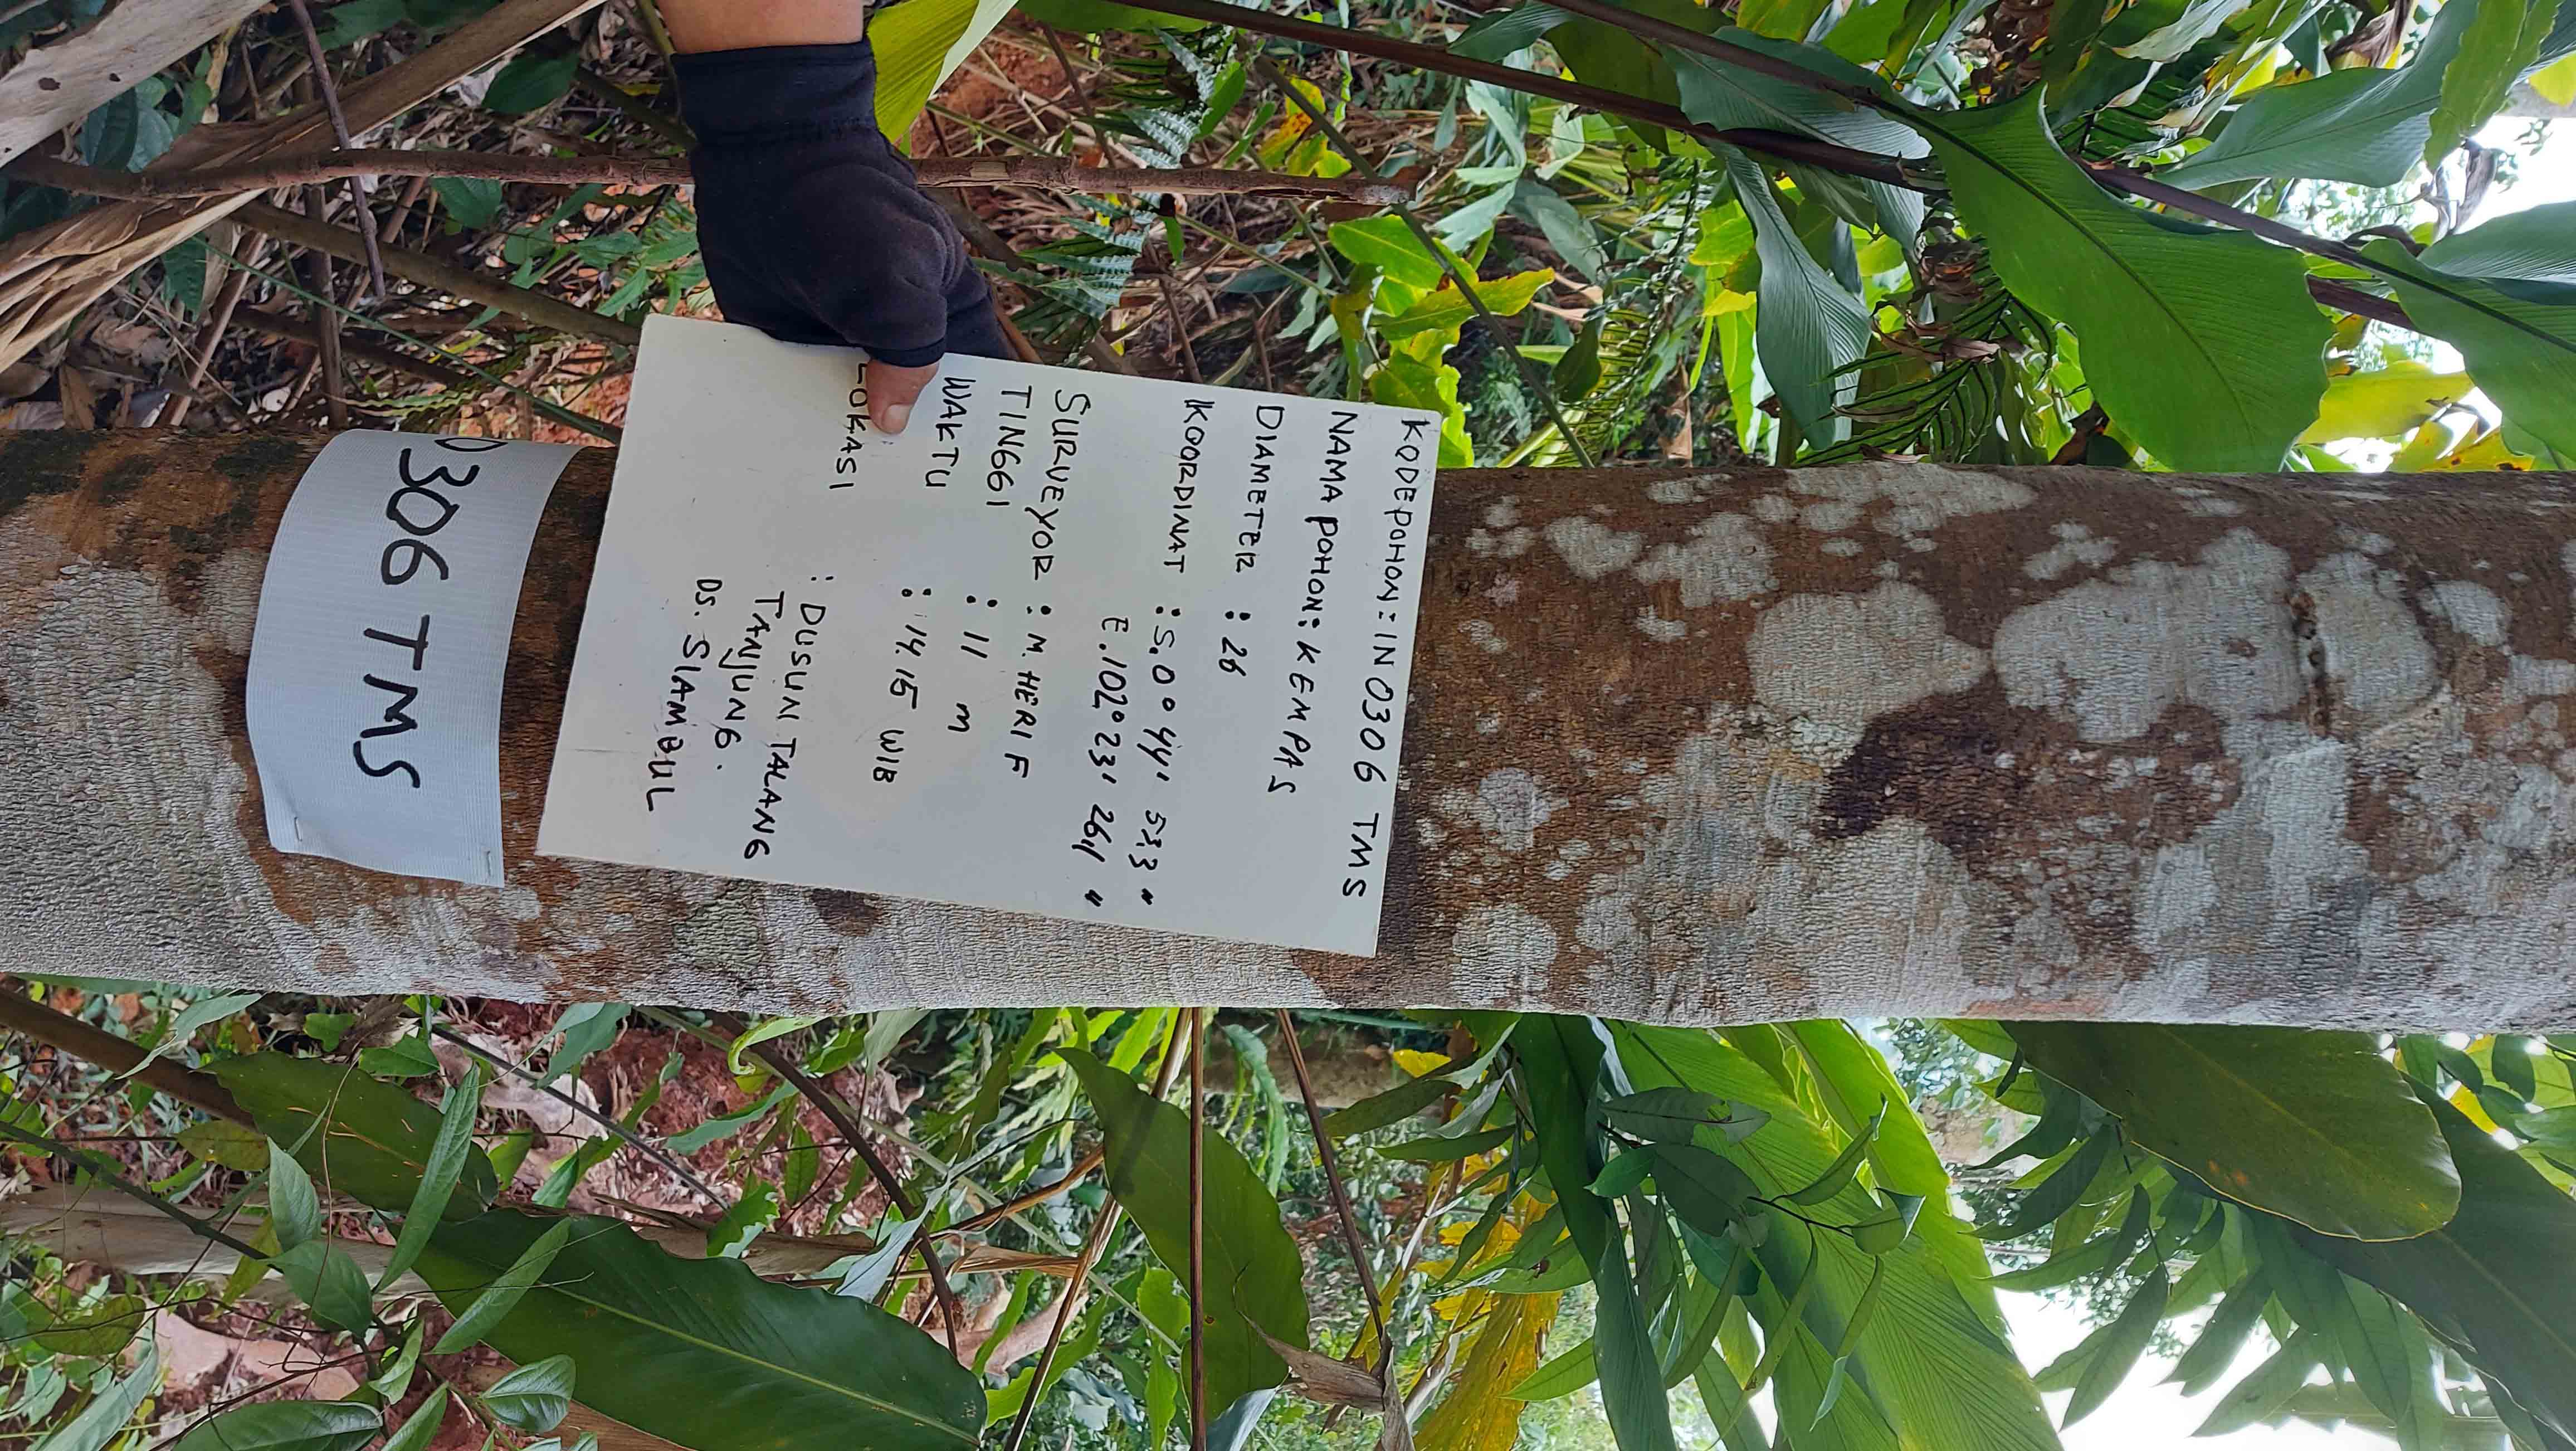 KODE POHON : IN 0306 TMS
NAMA POHON : KEMPAS
DIAMETER : 26
KOORDINAT : S. 0° 44' 53,3 "
E. 102° 23' 26,1 "
SURVEYOR : M. HERI F
TINGGI : 11 m
WAKTU : 14.15 WIB
LOKASI : DUSUN TALANG
TANJUNG.
DS. SIAMBUL
0306 TMS